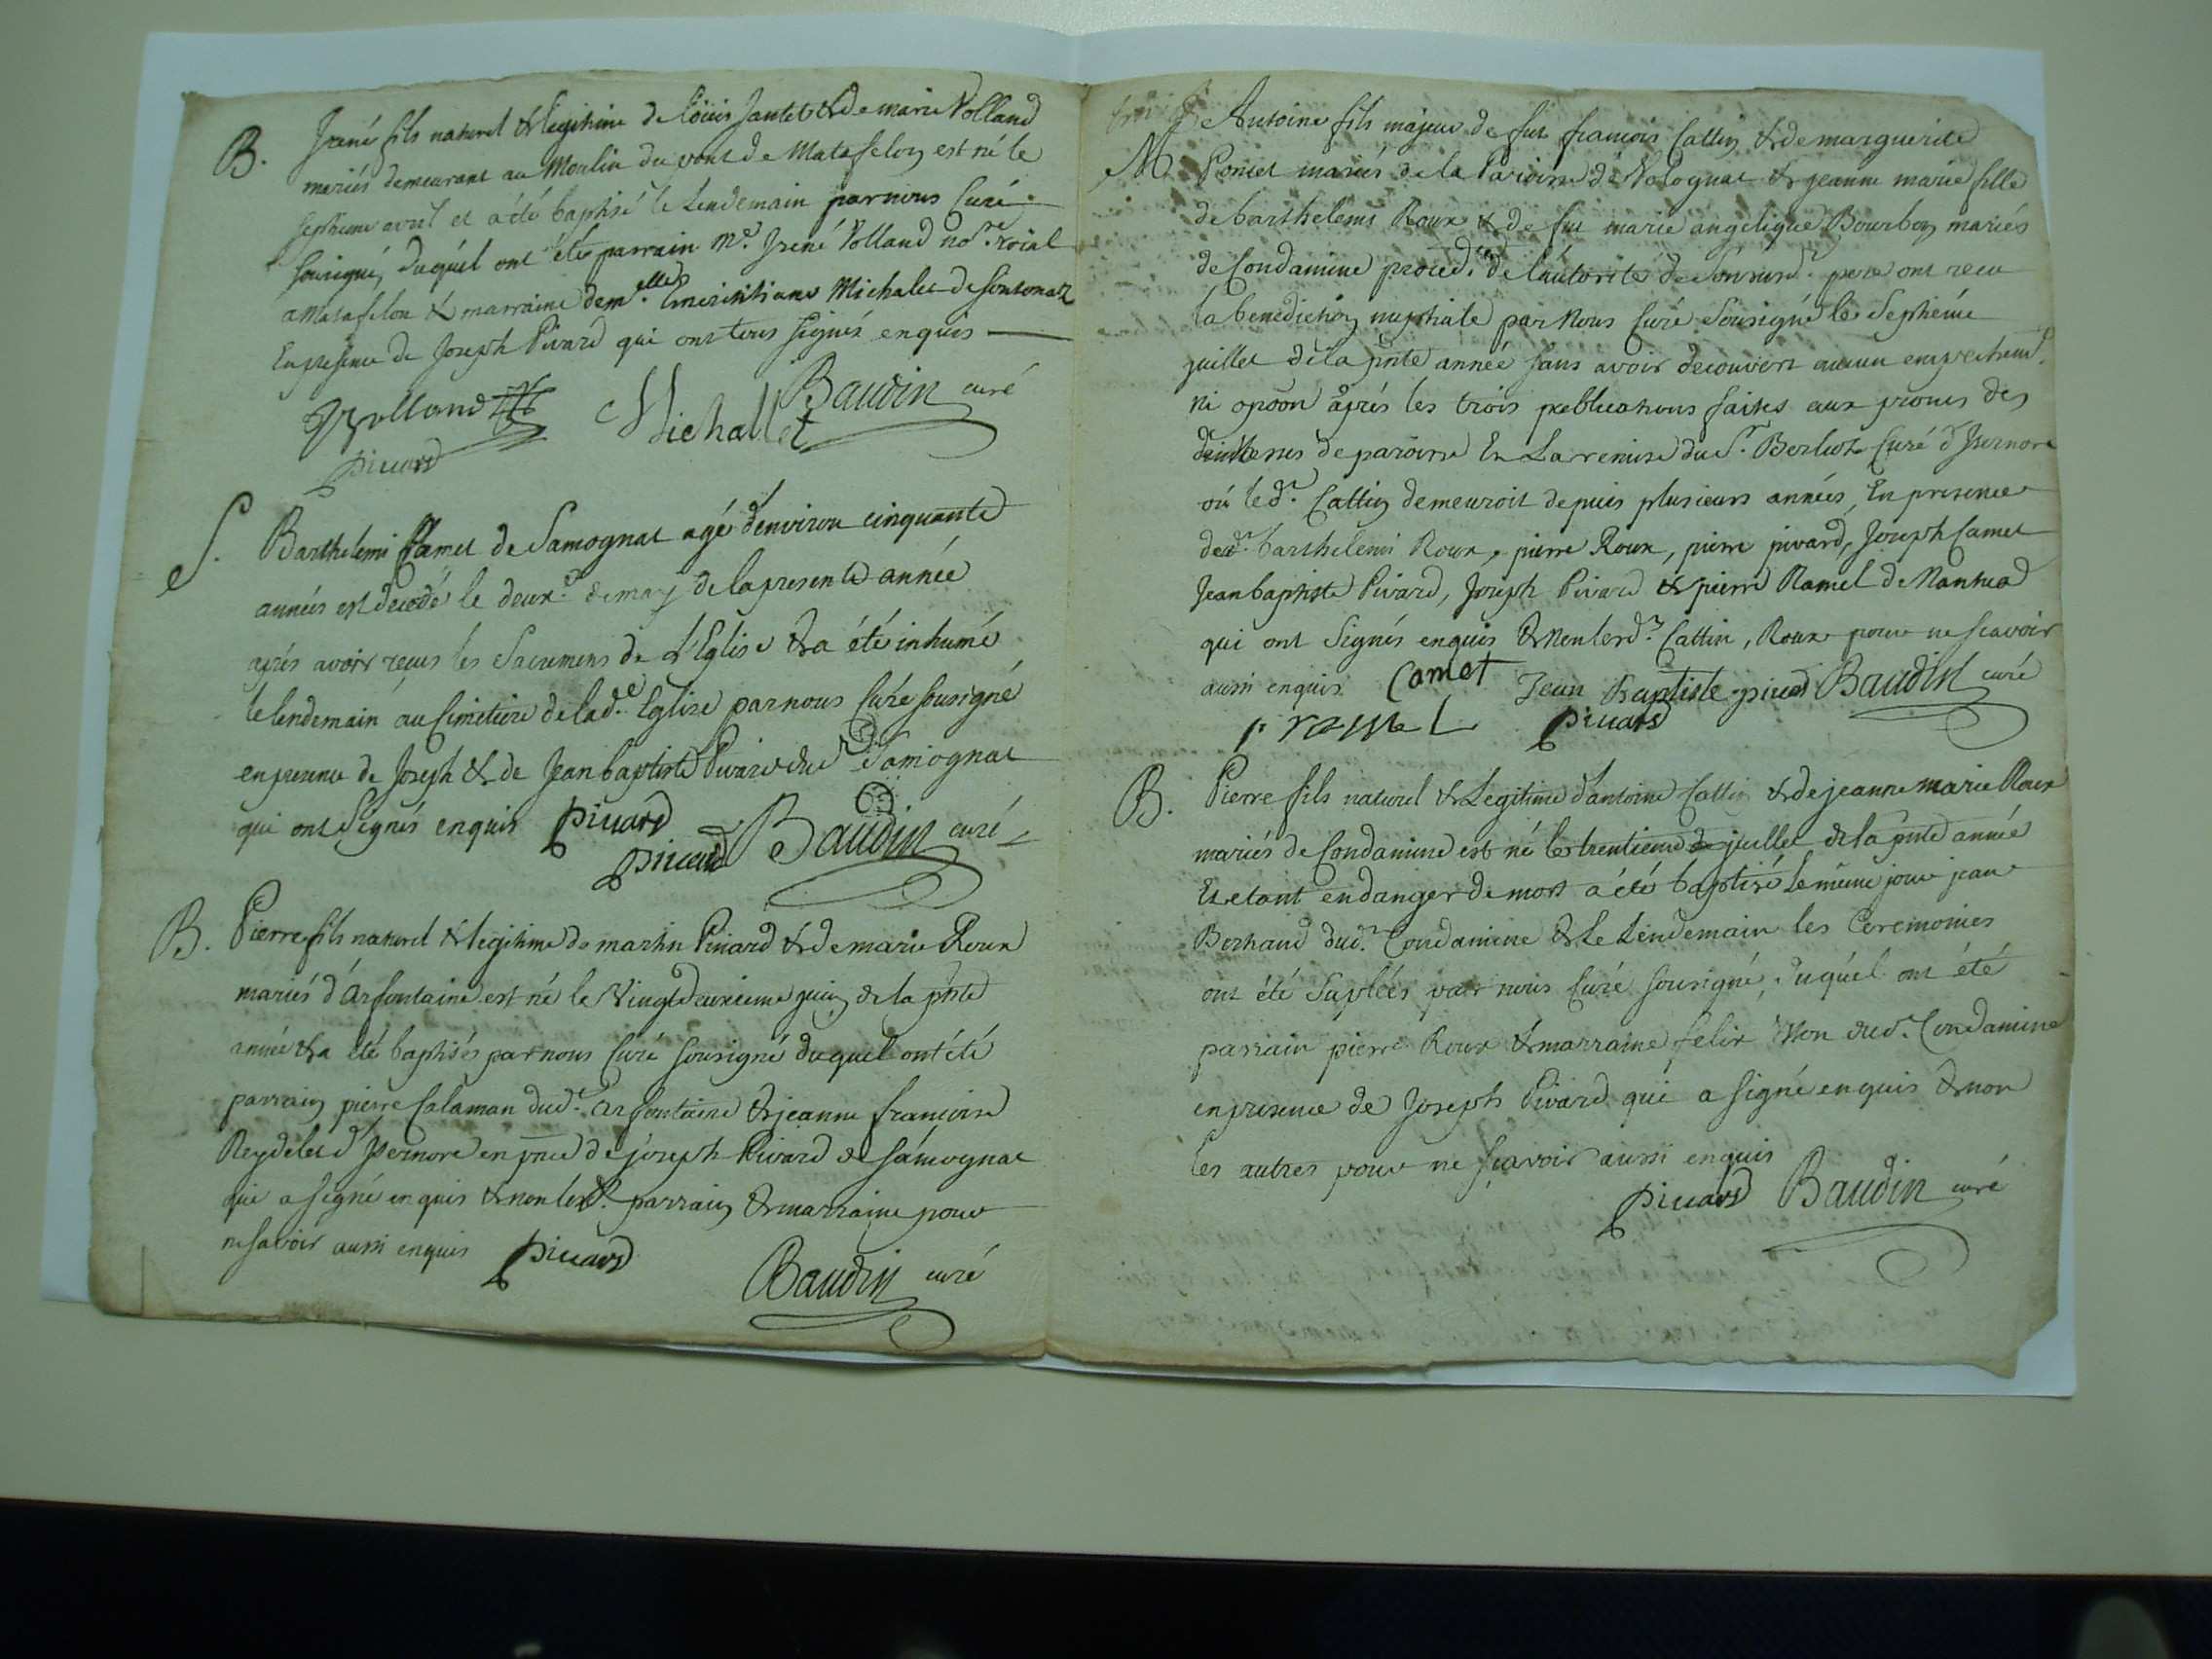 B. Irené fils naturel & legitime de loüis Jantet & de marie Volland
mariés demeurant au Moulin du pont de Matafelon est né le
septieme avril et a été baptisé le Lendemain par nous Curé
sousigné, duquel ont été parrain Me. Irené Volland nore. roial
a Matafelon & marraine demelle. Emerintiane Michalet de
En presence de Joseph Pivard qui ont tous signés enquis
Volland Michallet Baudin curé
pivard
S. Barthelemi Camet de Samognat agé d'environ cinquante
années est decedé le deuxe. de may de la presente année
aprés avoir reçus les Sacremens de L'Eglise & a été inhumé
le lendemain au Cimetiere de lade. Eglise par nous Curé sousigné
en presence de Joseph & de Jean baptiste Pivard dud Samognat
qui ont Signés enquis pivard
pivard Baudin curé
B. Pierre fils naturel & legitime de martin Pivard & de marie Roux
mariés d'Arfontaine est né le Vingt deuxieme juin de la pnte
année & a été baptisés par nous Curé sousigné duquel ont été
parrain pierre Calaman dud. arfontaine & jeanne françoise
Reydelet d'Isernore en pnce de joseph Pivard de samognat
qui a signé enquis & non lesd. parrain & marraine pour
ne savoir aussi enquis pivard
Baudin curé
Antoine fils majeur de feu francois Cattin & de marguerite
M. Poncet mariés de la Paroisse de Volognat & jeanne marie fille
de barthelemi Roux & de feu marie angelique Bourbon mariés
de Condamine proced. de l'autorité de sond. pere ont recu
la benediction nuptiale par Nous Curé Sousigné le Septieme
juillet de la pnte année sans avoir decouvert aucun empechemt.
ni opoon aprés les trois publications faites aux prones des
de paroisse En La remise du Sr. Berlioz Curé d'Isernore
où led. Cattin demeuroit depuis plusieurs années, En presence
dud. barthelemi Roux, pierre Roux, pierre pivard, Joseph Camet
Jean baptiste Pivard, Joseph Pivard & pierre Ramel de Nantua
qui ont Signés enquis & Non lesd. Cattin, Roux pour ne scavoir
aussi enquis Camet Jean Baptiste pivard Baudin curé
p ramel pivard
B. Pierre fils naturel & Legitime d'antoine Cattin & de jeanne marie Roux
mariés de Condamine est né le trentieme de juillet de la pnte année
Et etant en danger de mort a été baptisé Le même jour jean
dud. Condamine & Le Lendemain les Ceremonies
ont été Suplées par nous Curé sousigné, duquel ont été
parrain pierre Roux & marraine felix dud. Condamine
en presence de Joseph Pivard qui a signé enquis & non
les autres pour ne sçavoir aussi enquis
pivard Baudin curé